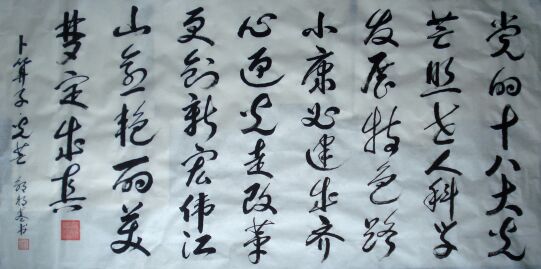 党的十八大光
芒照世人科学
发展特色路
小康必建成齐
心迈步走改革
更创新宏伟江
山愈艳丽美
梦定成真
卜算子 光芒 书